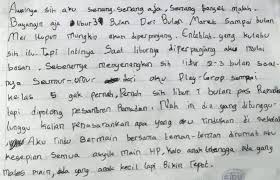 Awalnya sih aku senang-senang aja, senang banget malah.
Bayangin aja libur 3 Bulan Dari Bulan Maret sampai bulan
Mei itupun mungkin akan diperpanjang. Entahlah yang kutahu
sih itu. Tapi intinya saat liburnya diperpanjang aku mulai
bosan. Sebenernya menyenangkan sih libur 2-3 bulan soal
nya seumur-umur dari aku Play-Group sampai
kelas 5 gak pernah, Pernah sih libur ? bulan pas Ramadan
lagi dipotong pesantren Ramadan. Nah ini dia yang ditunggu
tunggu kalian penasarankan apa yang aku rindukan di sekolah
Aku rindu Bermain bersama teman-teman dirumah aku
kesepian semua asyik main HP, kalo anak tetangga ada yang
males main, ada yang anak kecil lagi Bikin repot.